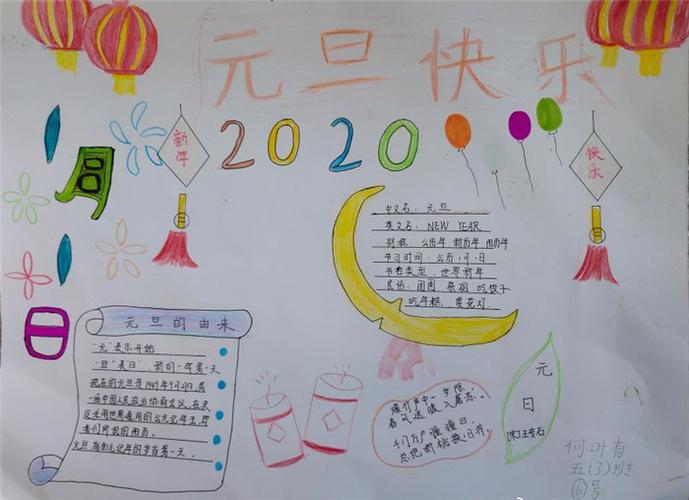 元旦快乐
新年
2020
快乐
1月
1日
中文名:元旦
英文名:NEW YEAR
别称:公历年 新历年 阳历年
节日时间:公历1月1日
节日类型:世界新年
民俗:团圆 祭祖 吃饺子
吃年糕 赏花灯.
元旦的由来
"元"表示开始
"旦"表"日",新的一年第一天
现在的元旦是1949年9月27日,第
一届中国人民政治协商会议,在决
元旦,指公元记年的岁首第一天.
爆竹声中一岁除,
春风送暖入屠苏.
千门万户曈曈日,
总把新桃换旧符.
元
日
[宋]王安石
何叶有
五(3)班
⑥号